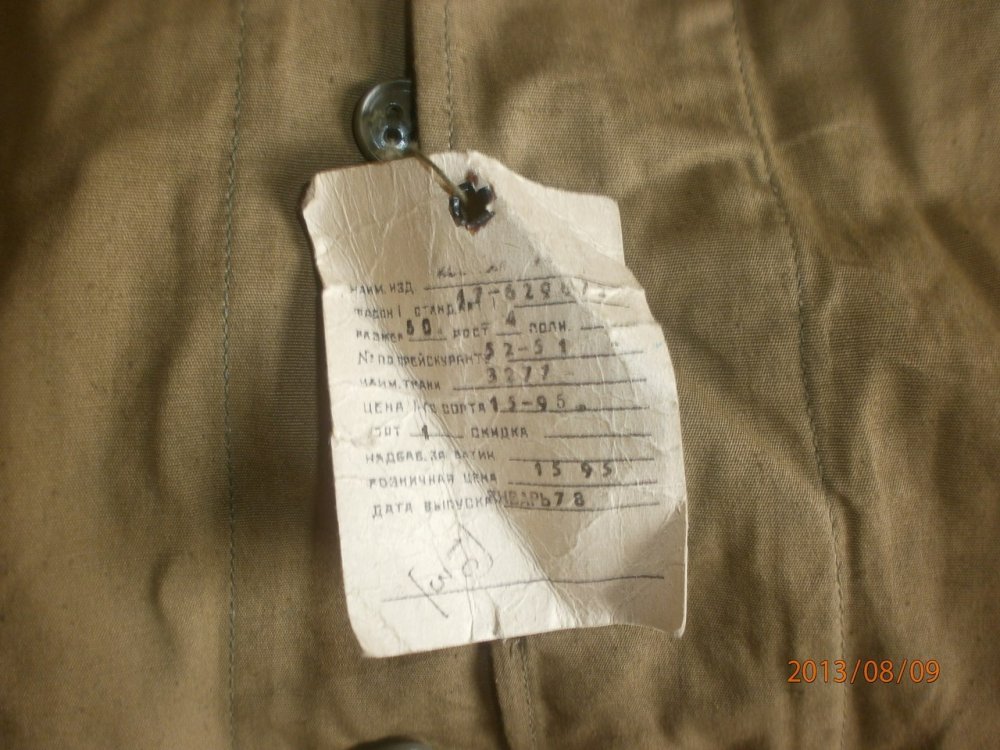 НАИМ.ИЗД.
ФАСОН СТАНДАРТ 17-62967
РАЗМЕР 50 РОСТ 4 ПОЛН.
№ ПО ПРЕЙСКУРАНТ 52-51
НАИМ.ТКАНИ 3277
ЦЕНА 1-ГО СОРТА 15-95
СОРТ 1 СКИДКА
НАДБАВ. ЗА ВАТИН
РОЗНИЧНАЯ ЦЕНА 15 95
ДАТА ВЫПУСКА ЯНВАРЬ 78
2013/08/09